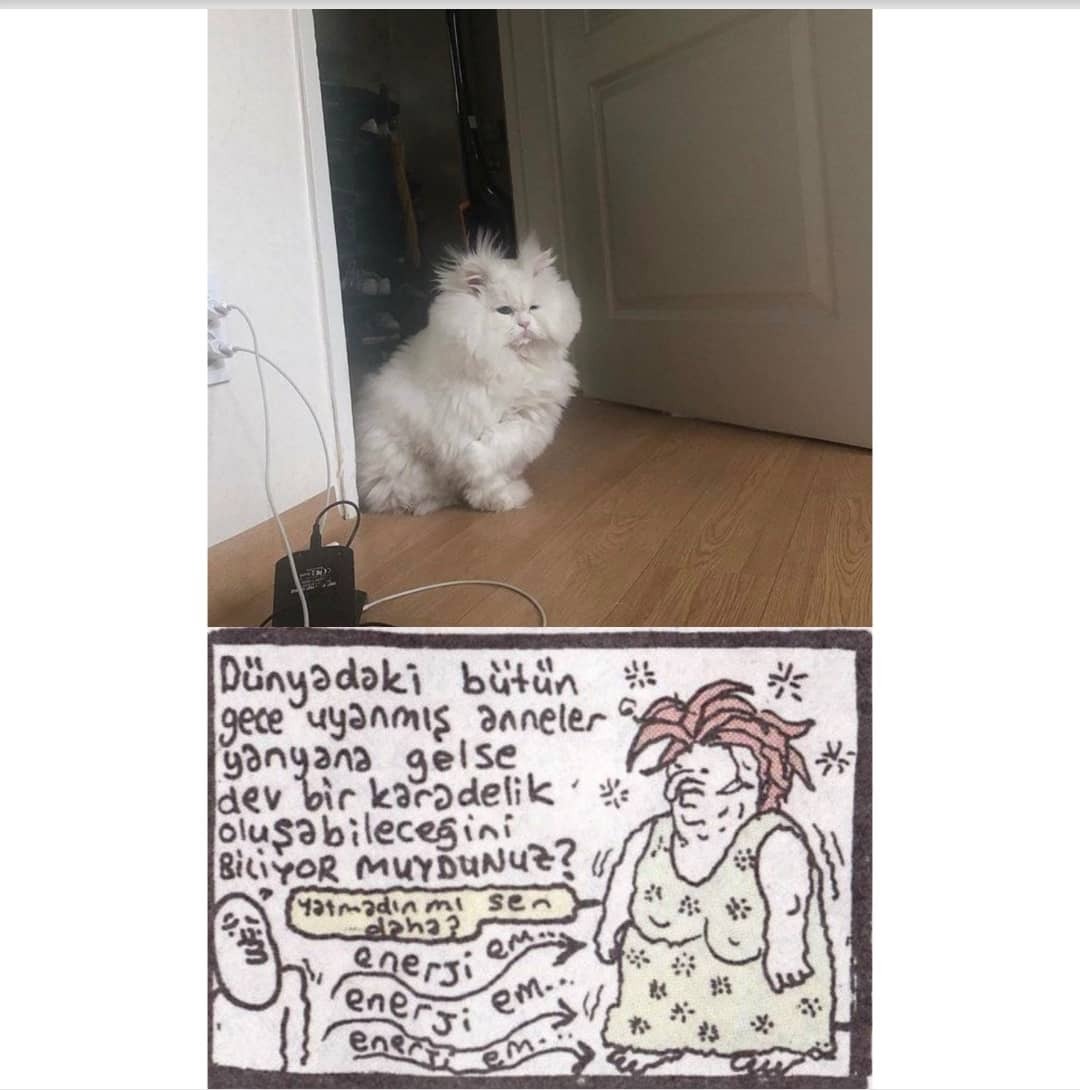 Dünyadaki bütün
gece uyanmış anneler
yanyana gelse
dev bir karadelik
oluşabileceğini
BiLiYOR MUYDUNUZ?
Yatmadın mı sen
daha?
enerji em...
enerji em...
enerji em...